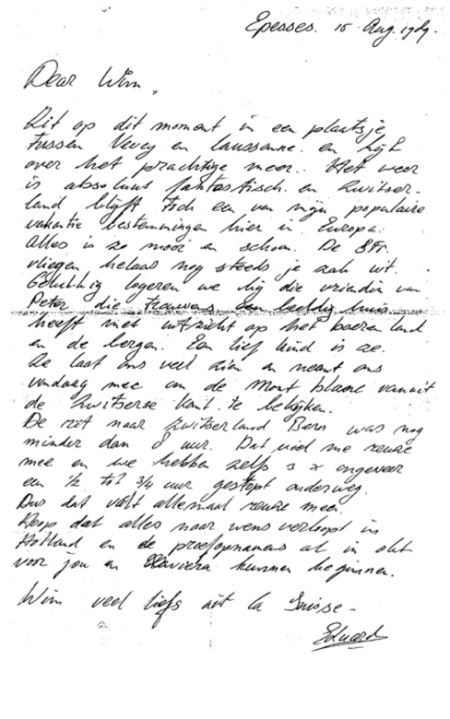 Epesses. 15 Aug. 1989.
Dear Wim,
Zit op dit moment in een plaatsje
tussen Vevey en Laussanne en kijk
over het prachtige meer. Het weer
is absoluut fantastisch en Zwitser-
land blijft toch een van mijn populaire
vakantie bestemmingen hier in Europa.
Alles is zo mooi en schoon. De SFr.
vliegen helaas nog steeds je zak uit.
Gelukkig logeren we bij die vriendin van
Peter, die trouwens een huis
heeft met uitzicht op het land
en de bergen. Een lief kind is ze.
Ze laat ons veel zien en neemt ons
vandaag mee om de Mont Blanc vanuit
de Zwitserse kant te bekijken.
De reit naar Zwitserland Bern was nog
minder dan 8 uur. Dat viel me reuze
mee en we hebben zelfs 3 x ongeveer
een 1/2 tot 3/4 uur gestopt onderweg.
Dus dat valt allemaal reuze mee.
Hoop dat alles naar wens verloopt in
Holland en de proefopnamens al in okt
voor jou en kunnen beginnen.
Wim veel liefs uit La Suisse -
Eduard